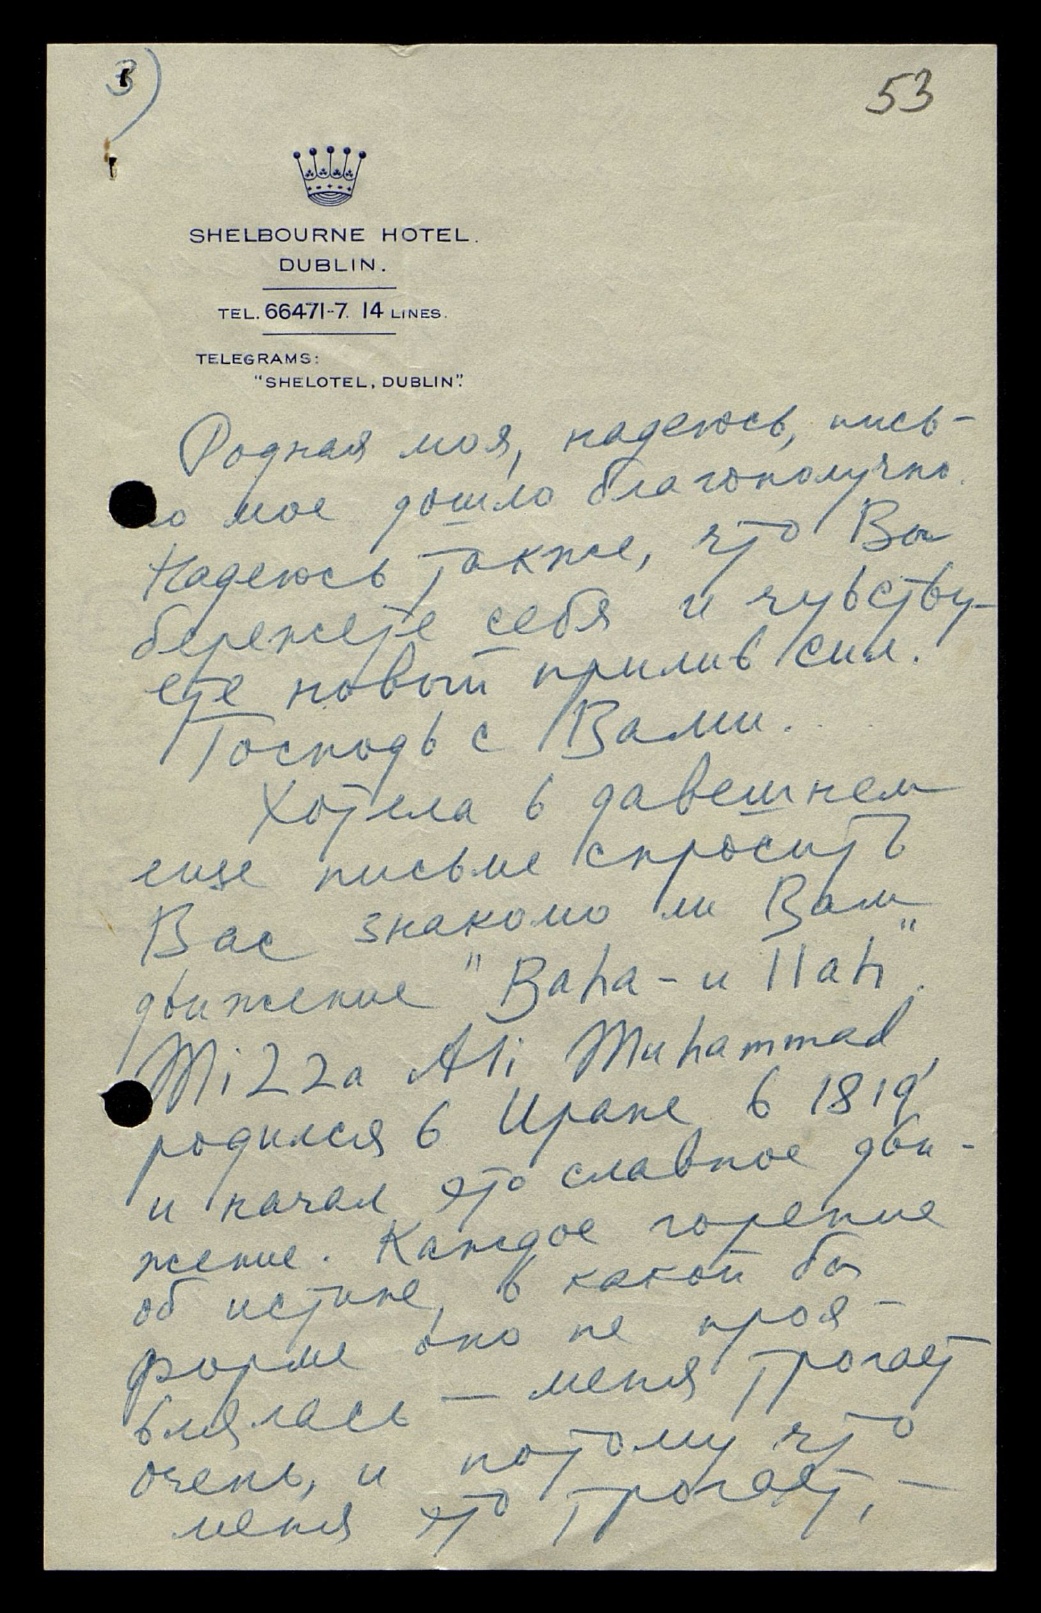 3)
53
SHELBOURNE HOTEL.
DUBLIN.
TEL. 66471-7. 14 LINES.
TELEGRAMS:
"SHELOTEL, DUBLIN".
Родная моя, надеюсь, пись-
мо мое дошло благополучно.
Надеюсь также, что Вы
бережете себя и чувству-
ете новый прилив сил.
Господь с Вами.
Хотела в давешнем
еще письме спросить
Вас знакомо ли Вам
движение "Baha-u llah".
Mizza Ali Muhammad,
родился в Иране в 1819
и начал это славное дви-
жение. Каждое горение
об истине, в какой бы
форме оно не проя-
влялась — меня трогает
очень, и потому что
меня это трогает, —